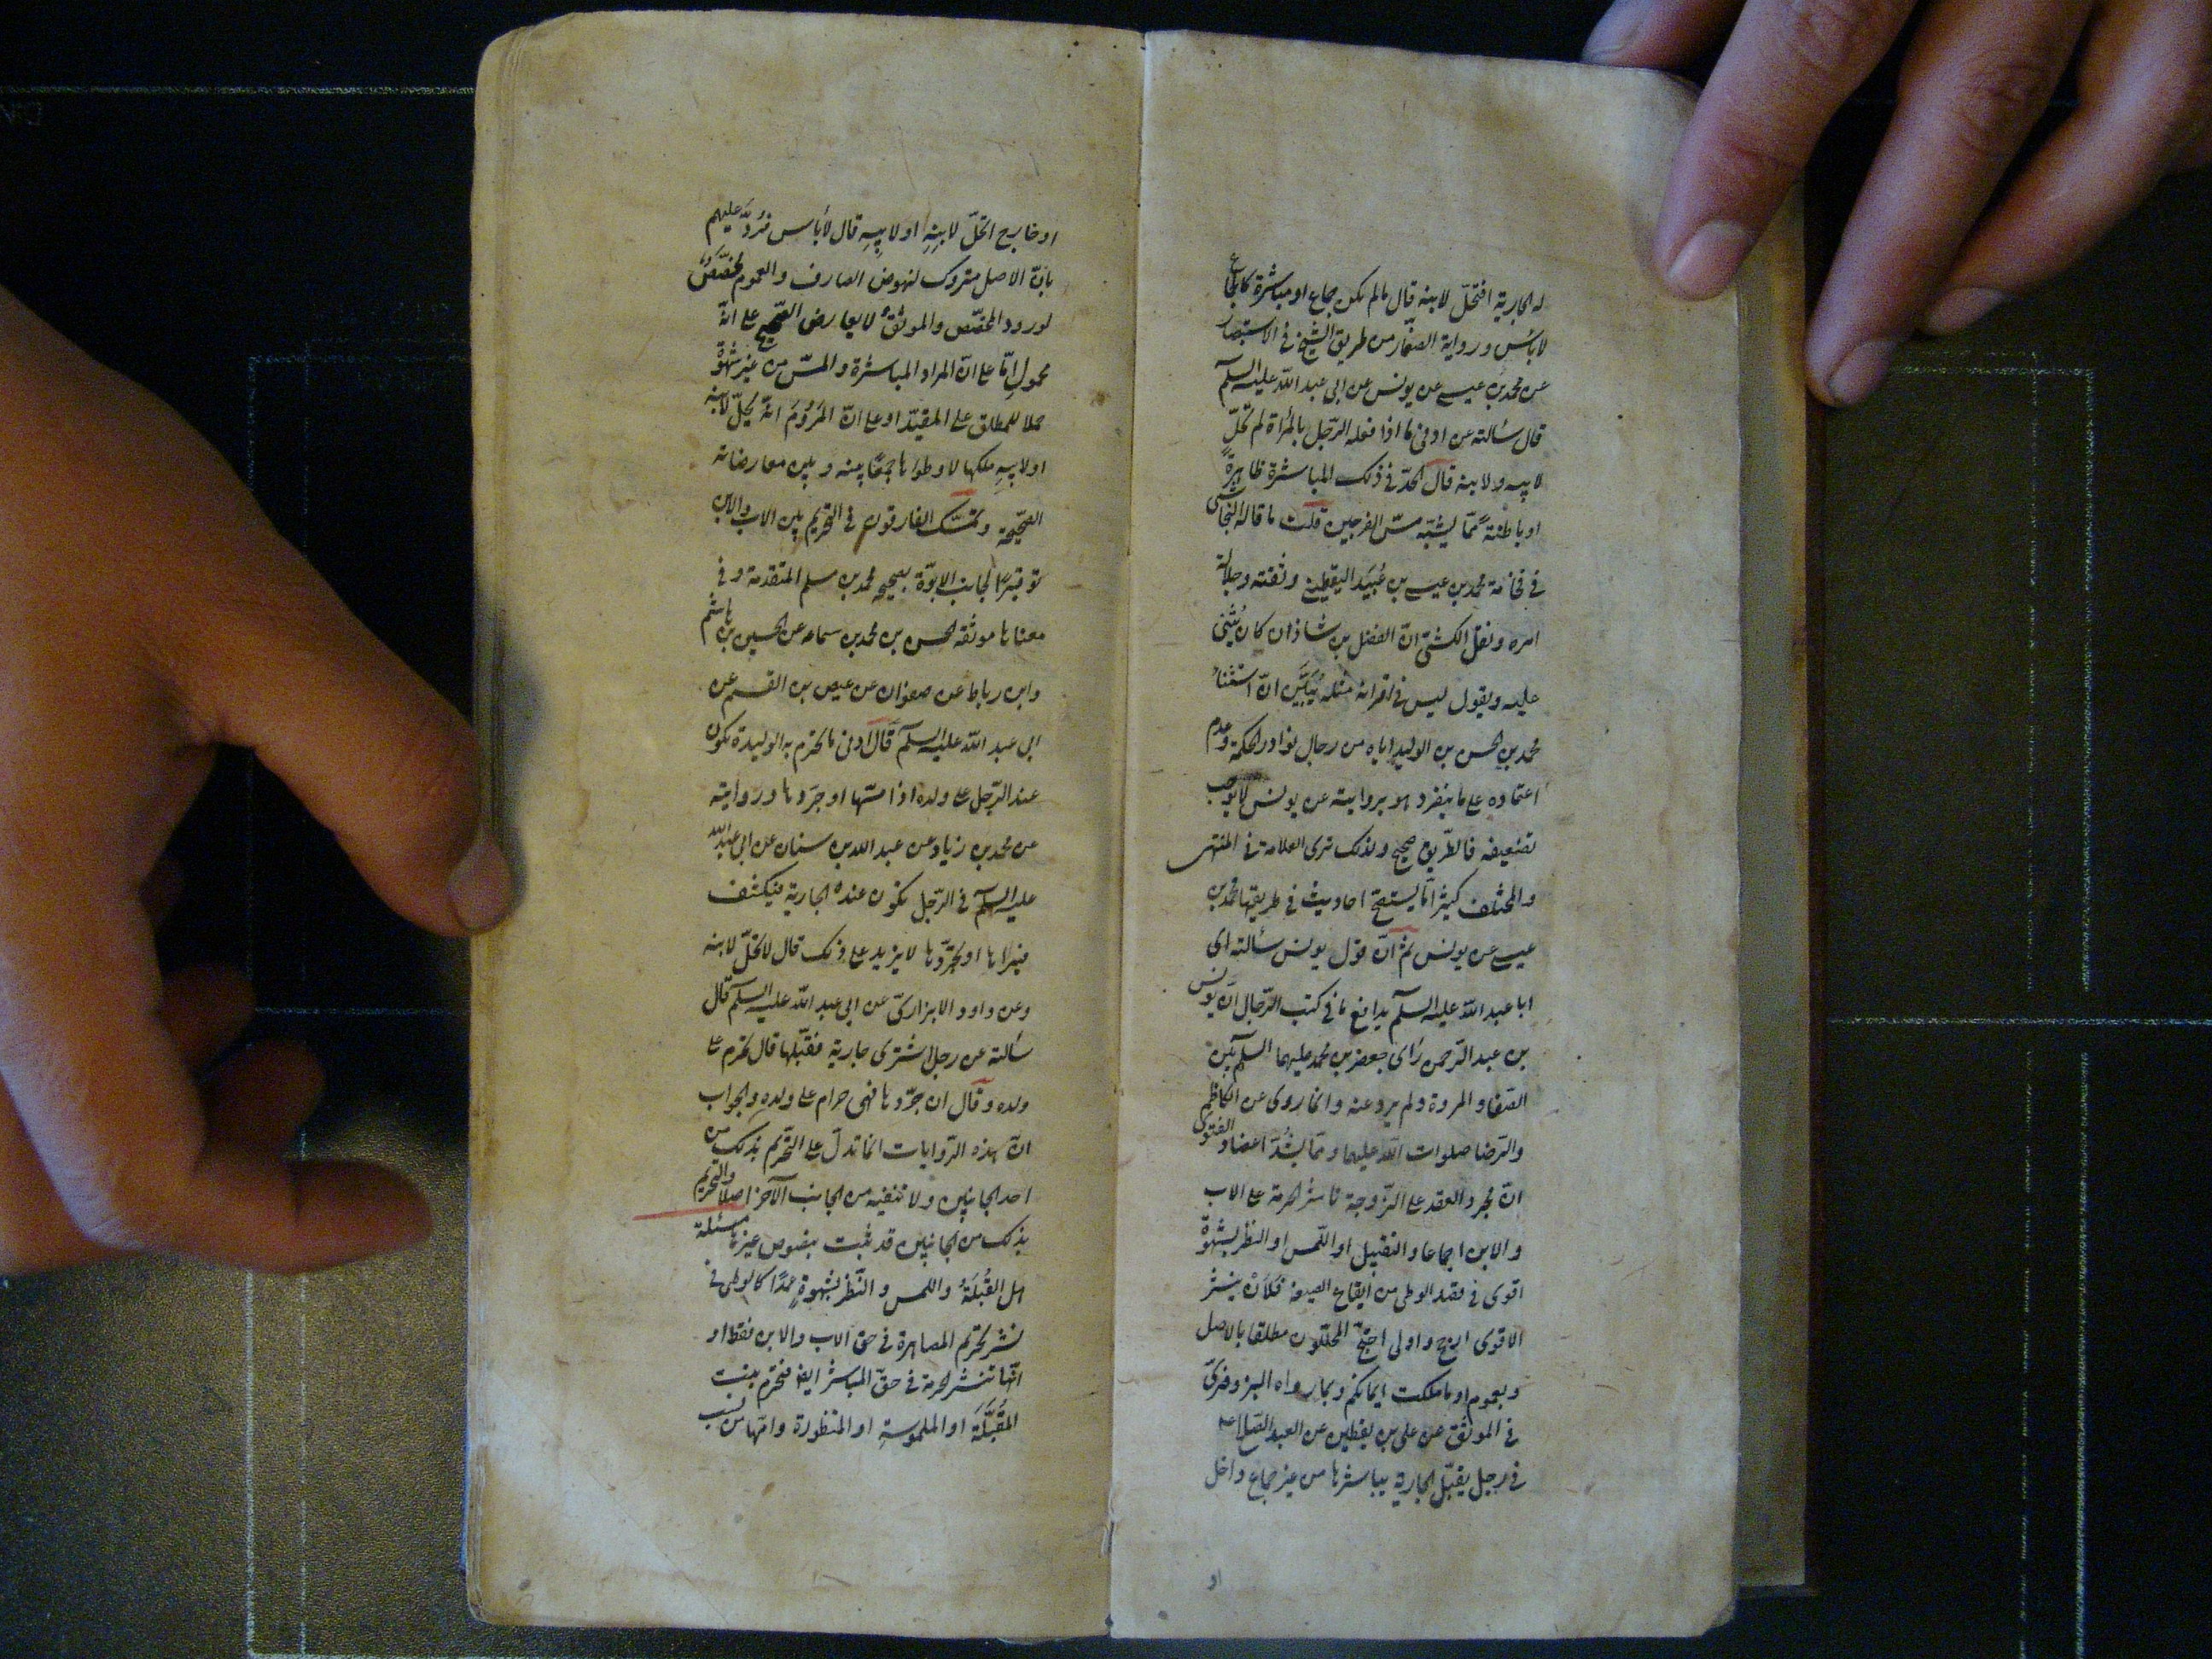 له الجارية افتحلّ لابنه قال ما لم يكن جماع او مباشرة كالجماع
لا بأس ورواية الصفّار من طريق الشيخ في الاستبصار
عن محمد بن عيسى عن يونس عن ابى عبد اللّه عليه السلم
قال سألته عن ادنى ما اذا فعله الرّجل بالمرأة لم تحلّ
لابيه ولابنه قال الحدّ في ذلك المباشرة ظاهرة
او باطنة ممّا يشبّه مسّ الفرجين قلت ما قاله النجاشى
في محمد بن عيسى بن عُبَيد اليقطينى وثقته وجلالة
امره ونقل الكشّى انّ الفضل بن شاذان كان يُثنى
عليه ويقول ليس في اقرانه مثله انّ استثناء
محمد بن الحسن بن الوليد اياه من رجال نوادر الحكمة وعدم
اعتماده على ما ينفرد هو بروايته عن يونس لا يوجب
تضعيفه فالطّريق صحيح ولذلك ترى العلامة في المنتهى
والمختلف كثيرا ما يستصحّ احاديث في طريقها محمد بن
عيسى عن يونس ثم انّ قول يونس سألته اى
ابا عبد اللّه عليه السلم يدافع ما في كتب الرّجال انّ يونس
بن عبد الرّحمن رأى جعفر بن محمد عليهما السلم بين
الصّفا والمروة ولم يرو عنه وانما روى عن الكاظم
والرّضا صلوات اللّه عليهما وممّا يشُدّ اعضاد الفتوى
انّ مجرد العقد على الزّوجة ناشر الحرمة على الاب
والابن اجماعا والتقبيل او اللّمس او النظر بشهوة
اقوى في قصد الوطى من ايقاع الصيغة فلأن ينشر
الاقوى ارجح واولى احتجّ المحللون مطلقا بالاصل
وبعموم او ما ملكت ايمانكم وبما رواه البزوفرىّ
في الموثّق عن على بن يقطين عن العبد الصّالح ع
في رجل يقبّل الجارية يباشرها من غير جماع داخل
او
او خارج اتحلّ لابنِهِ او لابيِهِ قال لا بأس فرُدّ عليهم
بانّ الاصل متروك لنهوض الصارف والعموم مخصّص
لورود المخصّص والموثّق لا يعارض الصّحيح على انّه
محمول امّا على انّ المراد المباشرة والمسّ من غير شهوة
حملا للمطلق على المقيّد او على انّ المَرُومَ انّه يحلّ لابنه
او لابيهِ ملكها لا وطؤها جمعًا بينه وبين معارضاته
الصّحيحة وتمسّك الفارقون في التحريم بين الاب والابن
توقيرًا لجانب الابوّة بصحيحه محمد بن مسلم المتقدمة وفي
معناها موثقه الحسن بن محمد بن سماعه عن الحسين بن هاشم
وابن رباط عن صفوان عن عيص بن القسم عن
ابى عبد اللّه عليه السلم قال ادنى ما تحرم به الوليدة تكون
عند الرّجل على ولده اذا مسّها او جرّدها وروايته
عن محمد بن زياد عن عبد الله بن سنان عن ابى عبد الله
عليه السلم في الرّجل تكون عنده الجارية فيكشف
فيراها او يجرّدها لا يزيد على ذلك قال لا تحلّ لابنه
وعن داود الابزارىّ عن ابى عبد اللّه عليه السلم قال
سألته عن رجل اشترى جارية فقبّلها قال تحرم على
ولده وقال ان جرّدها فهى حرام على ولده والجواب
انّ هذه الرّوايات انما تدلّ على التحريم بذلك من
احد الجانبين ولا تنفيه من الجانب الآخر اصلا والتحريم
بذلك من الجانبين قد ثبت بنصوص غيرها مسئلة
هل القُبلَةُ واللمس والنّظر بشهوةٍ عمدًا كالوطى في
نشر تحريم المصاهرة في حق الاب والابن فقط او
انّها تنشر الحرمة في حقّ المباشر ايضا فتحرم بنت
المُقَبَّلَة او الملموسةِ او المنظورة وامّها من نسب